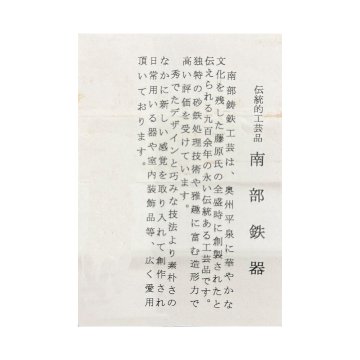 伝統的工芸品
南部鉄器
南部鋳鉄工芸は、奥州平泉に華やかな
文化を残した藤原氏の全盛時に創製されたと
伝えられる九百余年の永い伝統ある工芸品です。
独特の砂鉄処理技術や雅趣に富む造形力で
高い評価を受けています。
秀でたデザインと巧みな技法より素朴さの
なかに新しい感覚を取り入れて創作され
日常用いる器や室内装飾品等、広く愛用
頂いております。